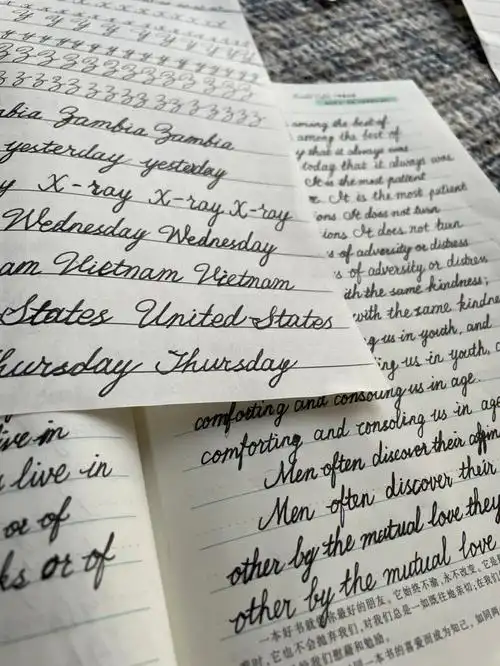 Zambia Zambia
yesterday yesterday
X-ray X-ray X-ray
Wednesday Wednesday
am Vietnam Vietnam
States United States
Thursday Thursday
among the best of
among the best of
y that it always was
today that it always was
It is the most patient
It is the most patient
ons It does not turn
ions It does not turn
s of adversity or distress
s of adversity or distress
ith the same kindness;
with the same kindne
g us in youth, and
ing us in youth, a
comforting and consoling us in age.
comforting and consoling us in age
Men often discover their affin
Men often discover their
other by the mutual love they
other by the mutual love
live in
live in
or of
ks or of
一本好书就像你最好的朋友。它始终不渝,永不改变。它是
它也不会抛弃我们,对我们总是一如既往地亲切;在我们
们慰藉和勉励。
一本书的喜爱而成为知己,如同两